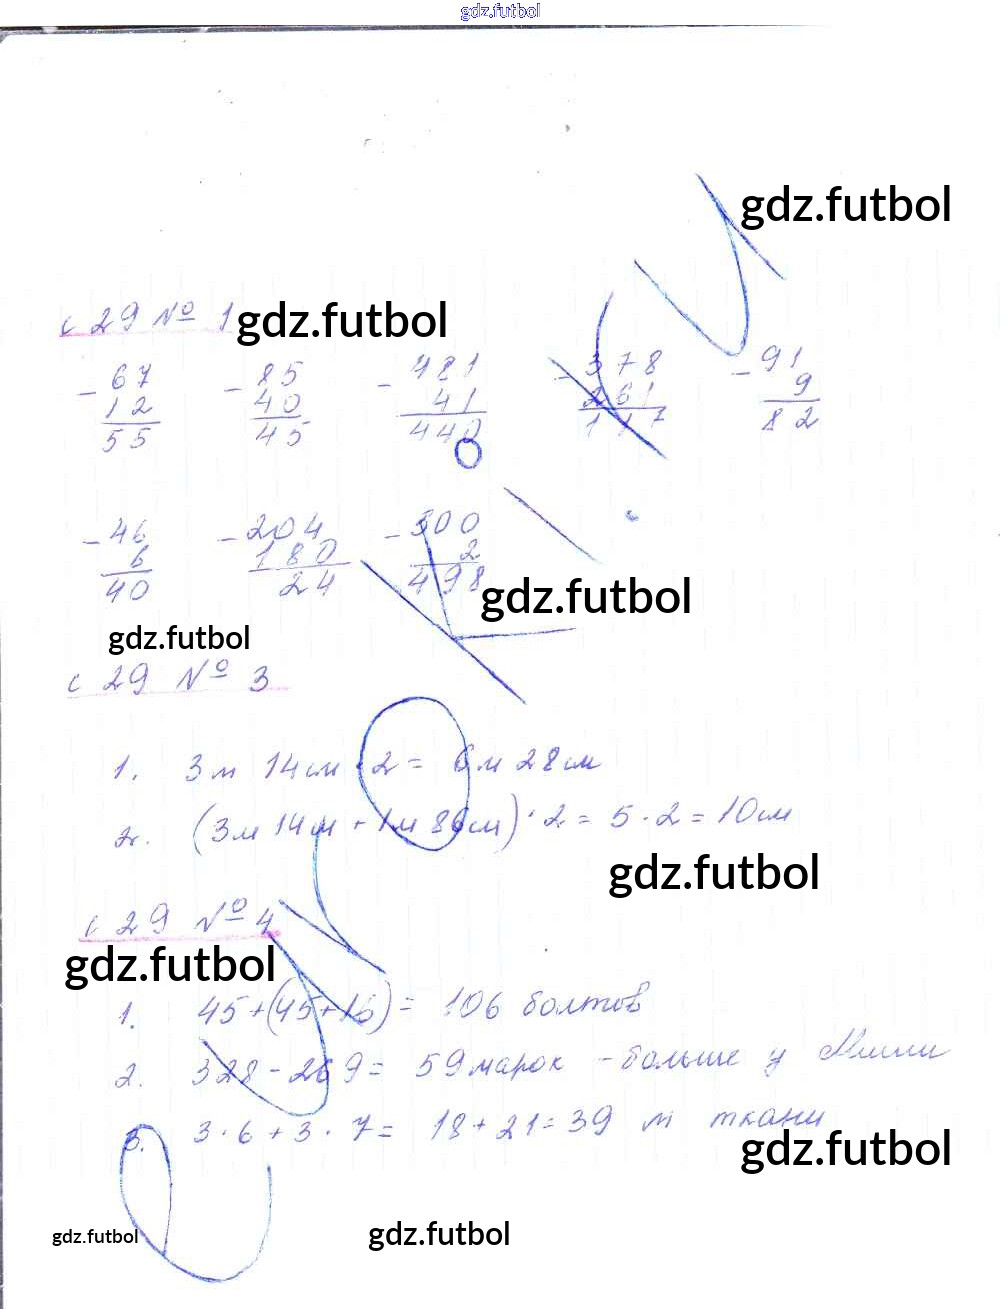 gdz.futbol
gdz.futbol
с 29 № 1 gdz.futbol
- 67 - 85 - 481 - 378 - 91
12 40 41 261 9
55 45 440 117 82
- 46 - 204 - 500
6 180 2
40 24 498
gdz.futbol
gdz.futbol
с 29 № 3
1. 3м 14см · 2 = 6м 28см
2. (3м 14см + 1м 86см) · 2 = 5 · 2 = 10см
gdz.futbol
с 29 № 4
gdz.futbol
1. 45 + (45 + 16) = 106 болтов
2. 328 - 269 = 59 марок - больше у Миши
3. 3 · 6 + 3 · 7 = 18 + 21 = 39 м ткани
gdz.futbol
gdz.futbol gdz.futbol